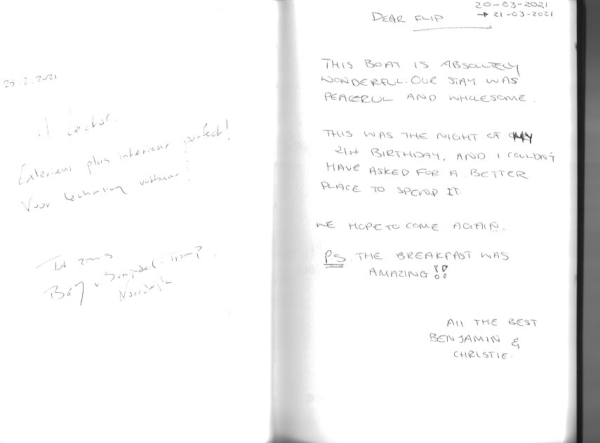 't Lechar.
Exterieur plus interieur perfect!
Voor
Tot ziens
20-03-2021
→ 21-03-2021
DEAR FLIP
THIS BOAT IS ABSOLUTELY
WONDERFUL. OUR STAY WAS
PEACEFUL AND WHOLESOME.
THIS WAS THE NIGHT OF MY
21ST BIRTHDAY, AND I COULDN'T
HAVE ASKED FOR A BETTER
PLACE TO SPEND IT
WE HOPE TO COME AGAIN.
PS. THE BREAKFAST WAS
AMAZING!!
All THE BEST
BENJAMIN &
CHRISTIE.